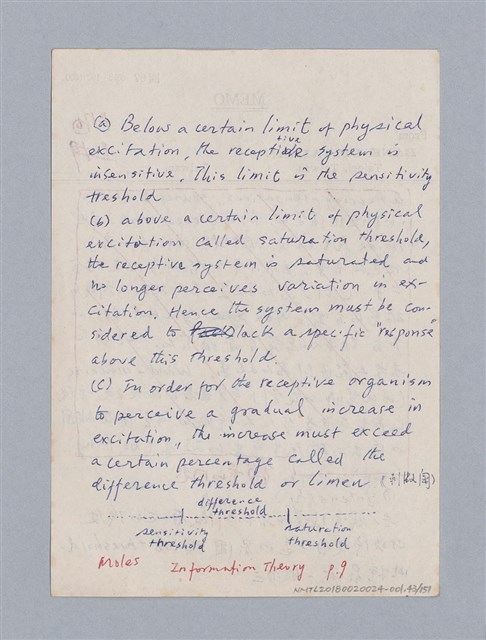 (a) Below a certain limit of physical
excitation, the receptive system is
insensitive. This limit is the sensitivity
treshold
(b) above a certain limit of physical
excitation called saturation threshold,
the receptive system is saturated and
no longer perceives variation in ex-
citation. Hence the system must be con-
sidered to lack a specific "response"
above this threshold.
(c) In order for the receptive organism
to perceive a gradual increase in
excitation, the increase must exceed
a certain percentage called the
difference threshold or limen (刺激閾)
difference
threshold
sensitivity
threshold
saturation
threshold
Moles Information Theory p.9
NMTL20180020024-001.43/151
MEMO